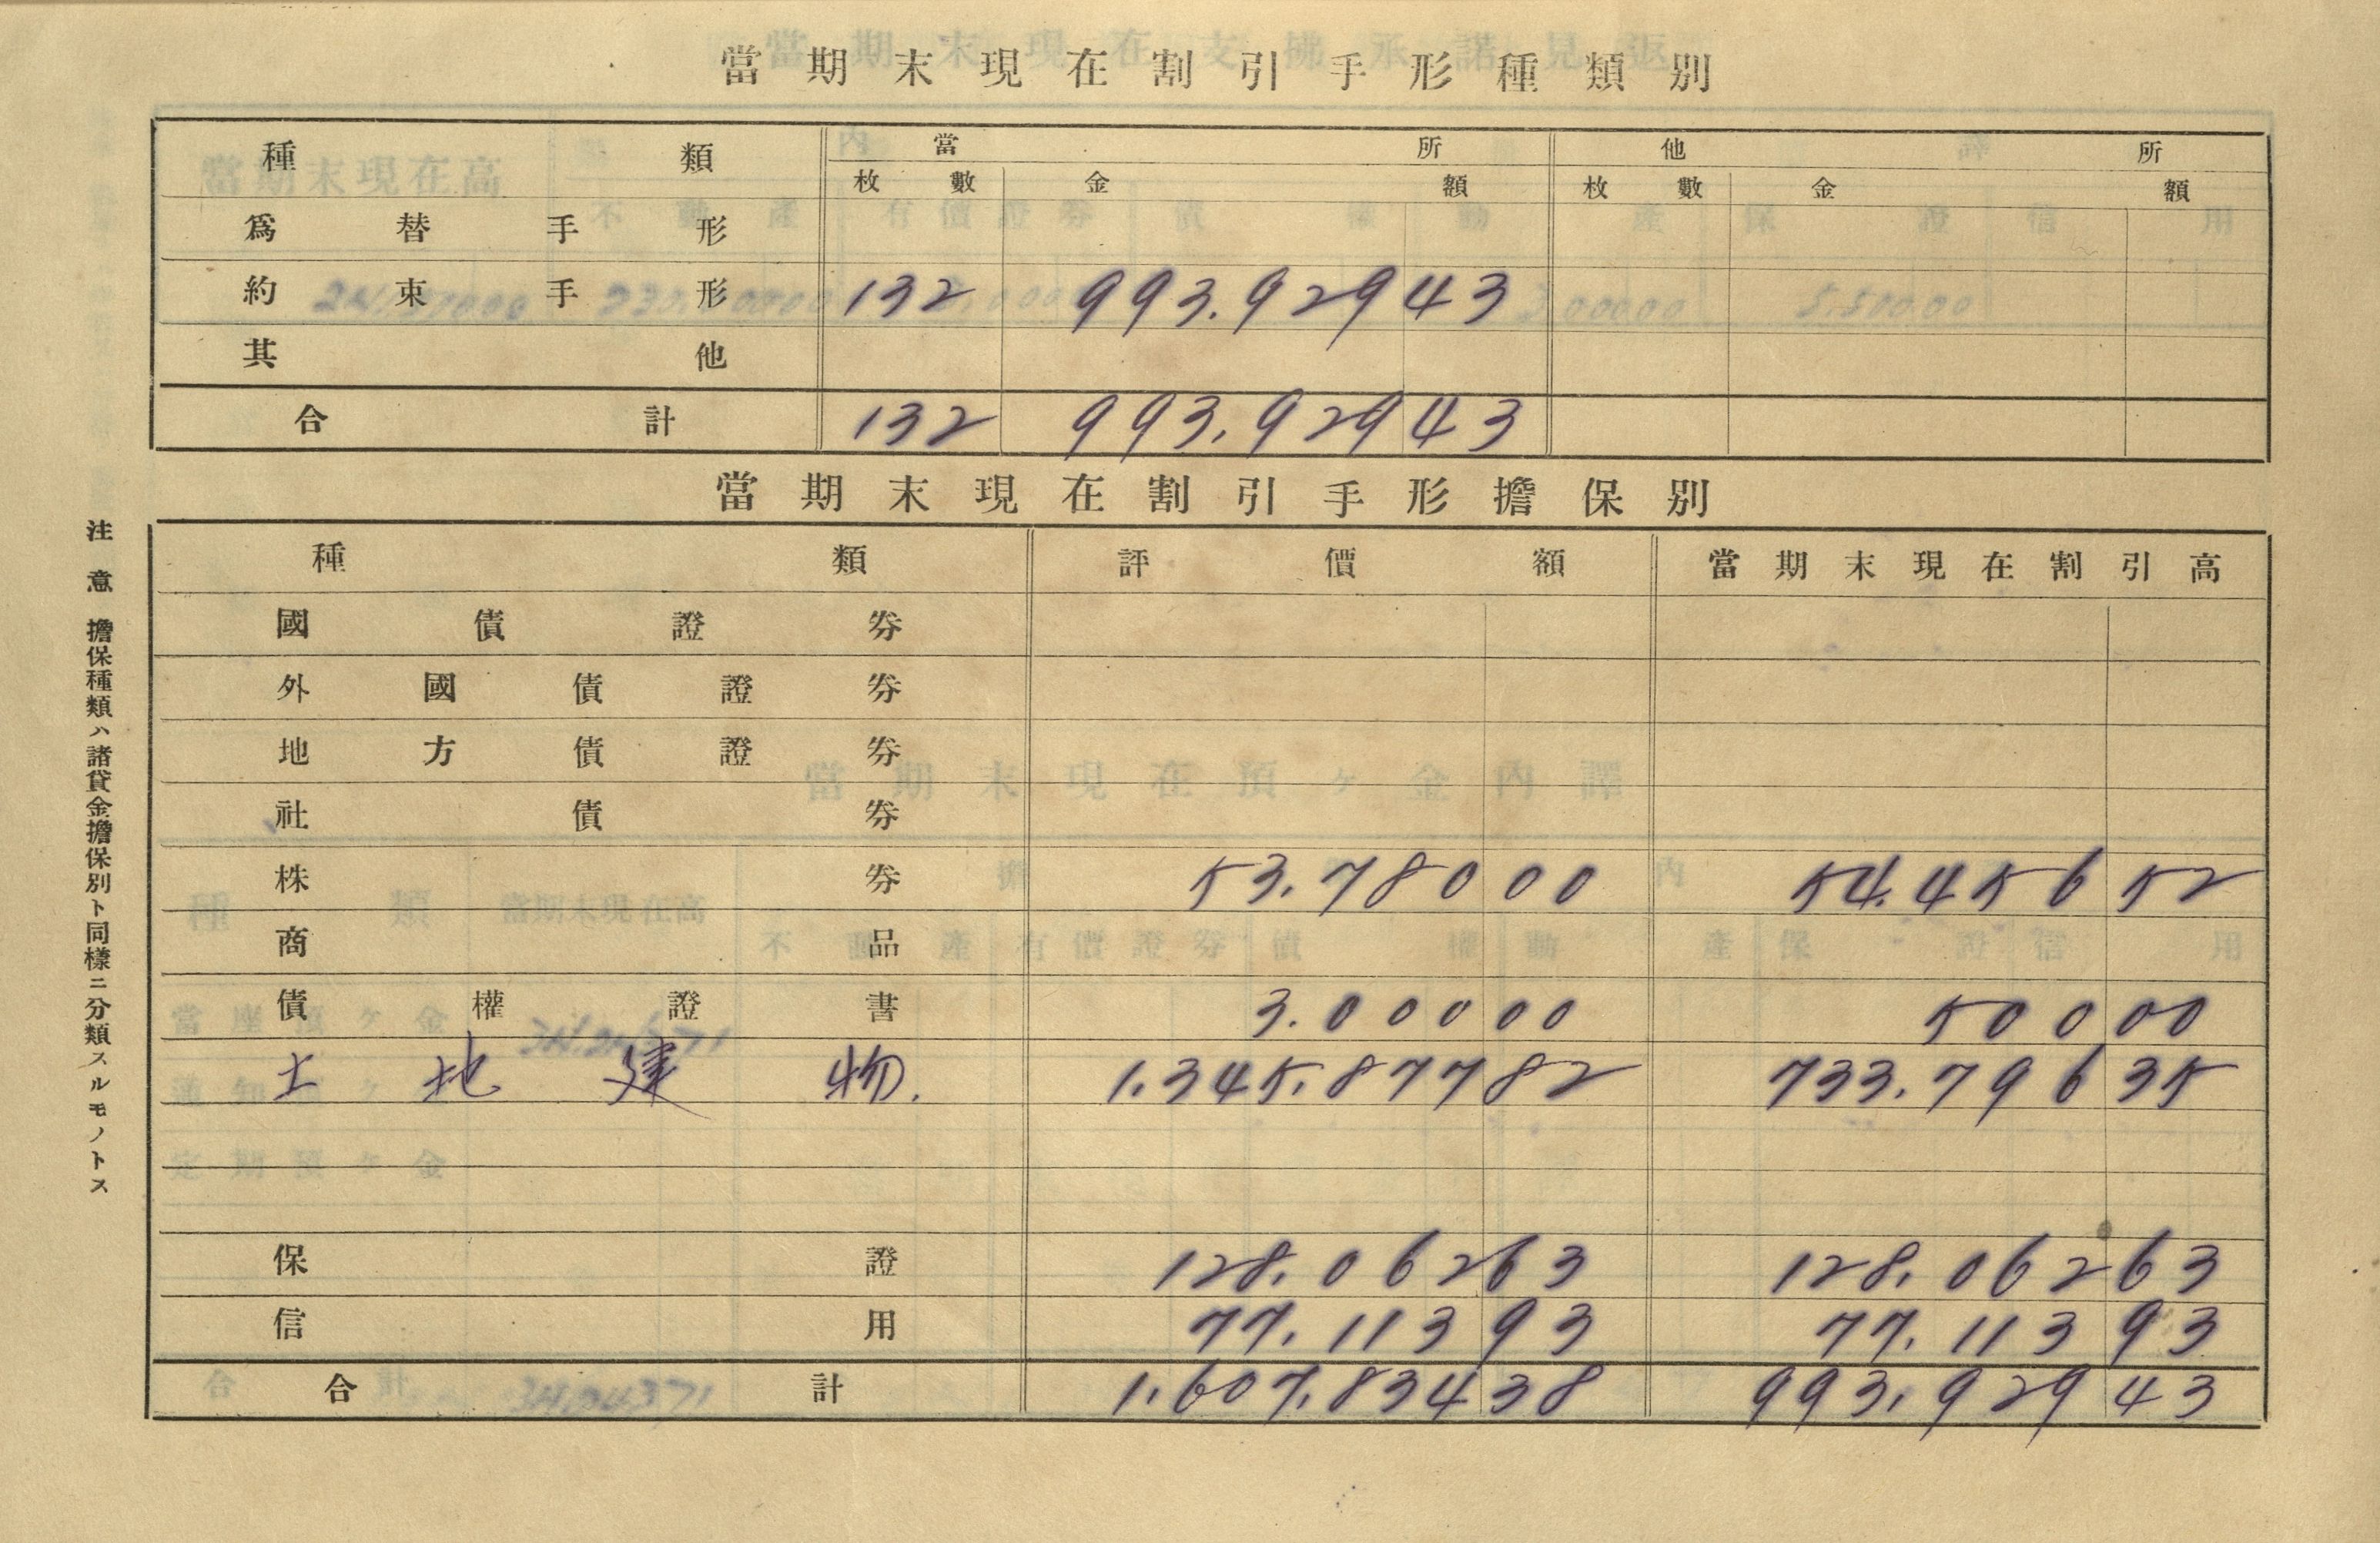 當期末現在割引手形種類別
種類 當所 他所
枚數 金額 枚數 金額
爲替手形
約束手形 132 993.929 43
其他
合計 132 993.929 43
當期末現在割引手形擔保別
種類 評價額 當期末現在割引高
國債證券
外國債證券
地方債證券
社債券
株券 53.780 00 54.456 52
商品
債權證書 3.000 00 500 00
土地建物. 1.345.877 82 733.796 35
保證 128.062 63 128.062 63
信用 77.113 93 77.113 93
合計 1.607.834 38 993.929 43
注意 擔保種類ハ諸貸金擔保別ト同樣ニ分類スルモノトス